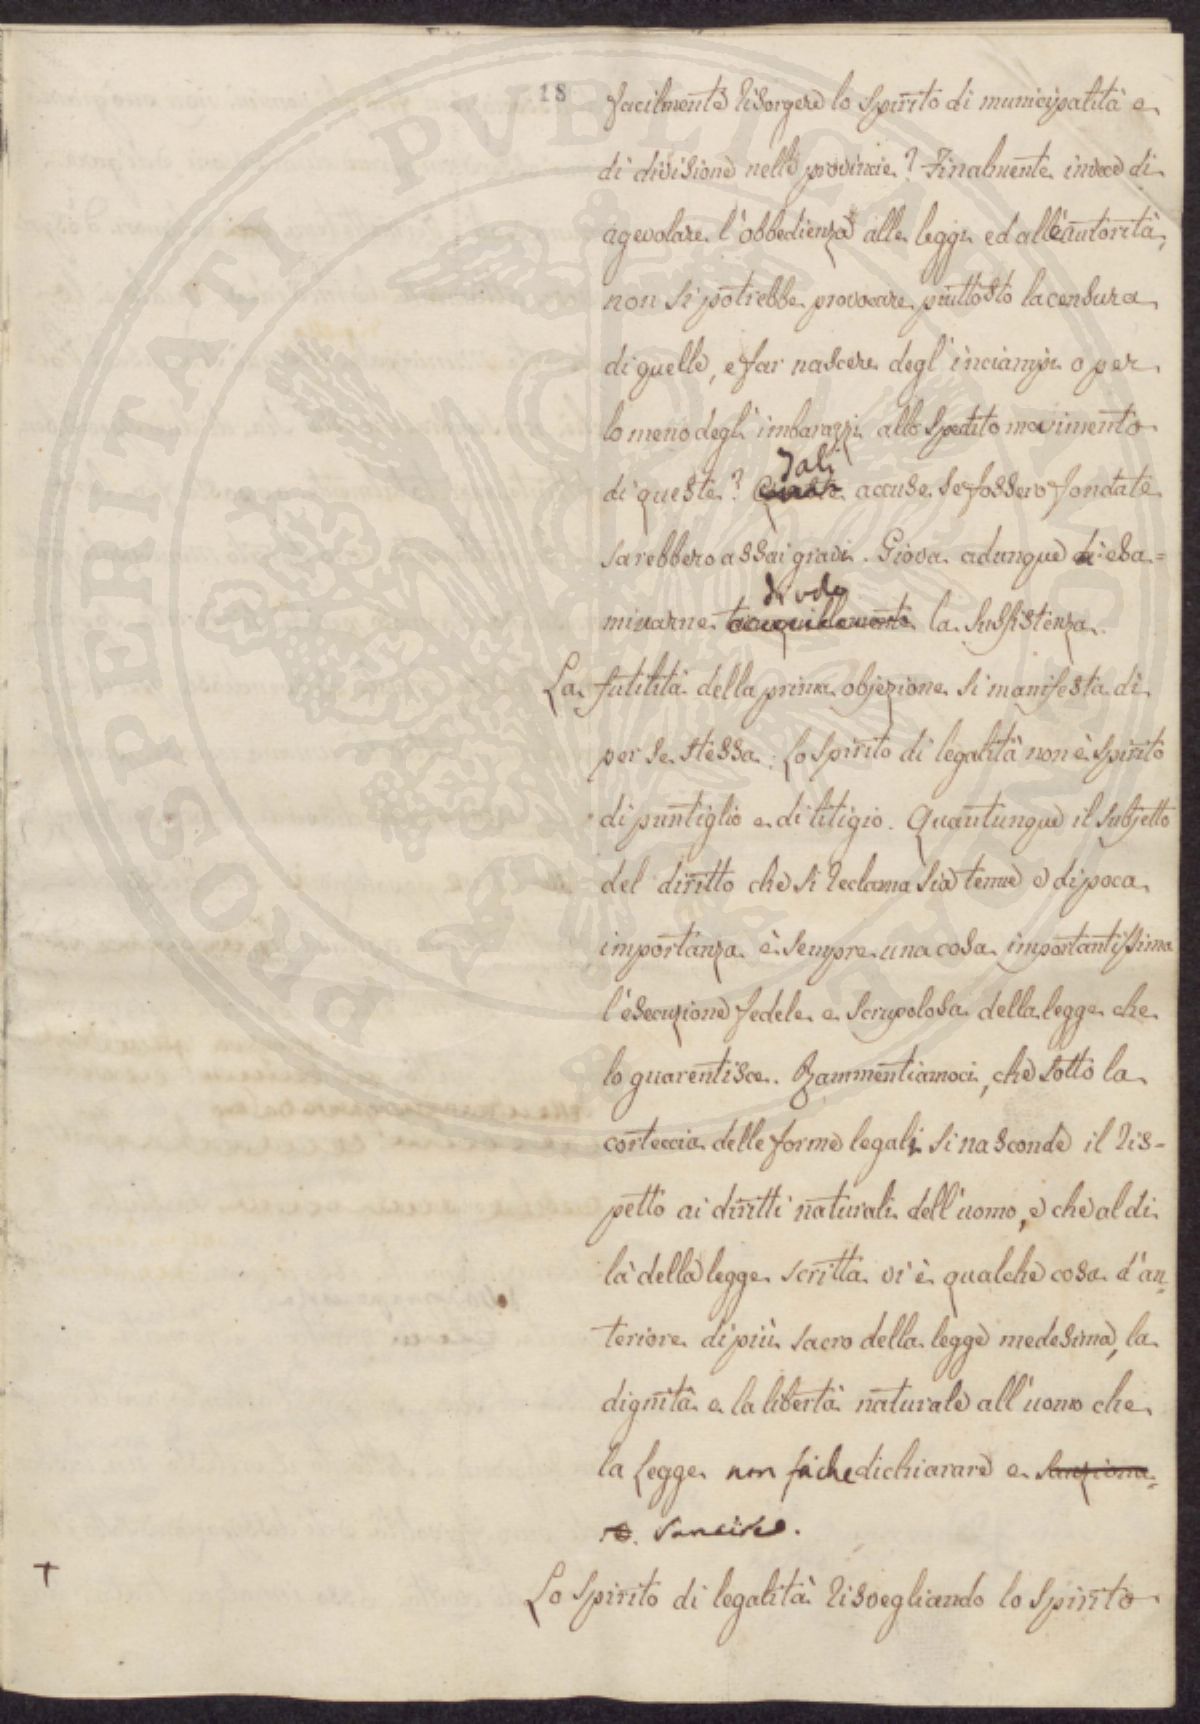 18
facilmente risorgere lo spirito di municipalità e
di divisione nelle provincie? Finalmente invece di
agevolare l'obbedienza alle leggi ed all'autorità,
non si potrebbe provocare piuttosto la censura
di quelle, e far nascere degl'inciampi o per
lo meno degl'imbarazzi allo spedito movimento
di queste? Queste Tali accuse se fossero fondate
sarebbero assai gravi. Giova adunque di esa=
minarne tranquillamente la sussistenza.
La futilità della prima objezione si manifesta di
per se stessa: Lo spirito di legalità non è spirito
di puntiglio e di litigio. Quantunque il subjetto
del diritto che si reclama sia tenue e di poca
importanza è sempre una cosa importantissima
l'esecuzione fedele e scrupolosa della legge che
lo guarentisce. Rammentiamoci, che sotto la
corteccia delle forme legali si nasconde il ris-
petto ai diritti naturali dell'uomo, e che al di
là della legge scritta vi è qualche cosa d'an=
teriore di più sacro della legge medesima, la
dignità e la libertà naturale all'uomo che
la legge non fa che dichiarare e sanziona=
re. sancire.
+ Lo spirito di legalità risvegliando lo spirito
PROSPERITATI PVBLICAE